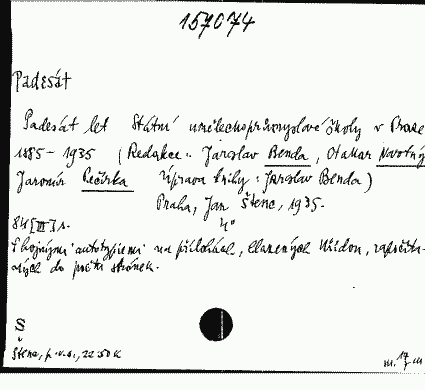 157074
Padesát
Padesát let Státní uměleckoprůmyslové školy v Praze
1885-1935 (Redakce: Jaroslav Benda, Otakar Novotný
Jaromír Pečírka Úprava knihy: Jaroslav Benda)
Praha, Jan Štenc, 1935.
84 [III] s. 4°
S hojnými autotypiemi na přílohách, hlazených křídou, započíta-
ných do počtu stránek.
S
Štenc, p.v.s., 22.50 K
m. 17